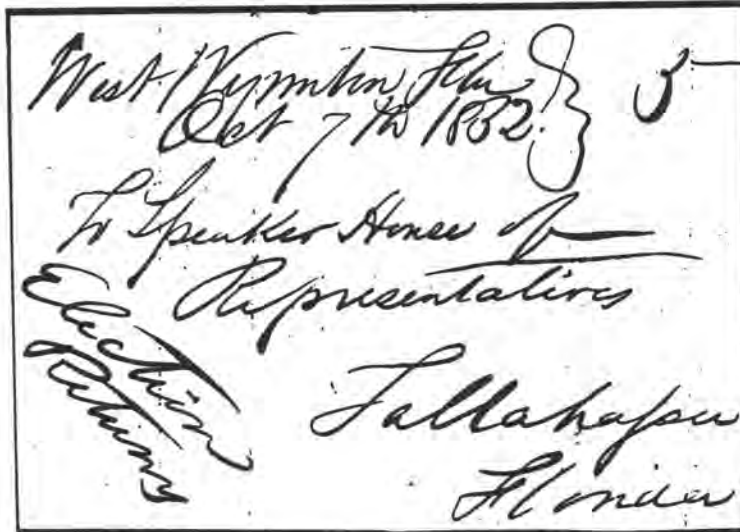 West Wynnton, Fla 5
Oct 7th 1852
To Speaker House of
Representatives
Election
Returns
Tallahassee
Florida